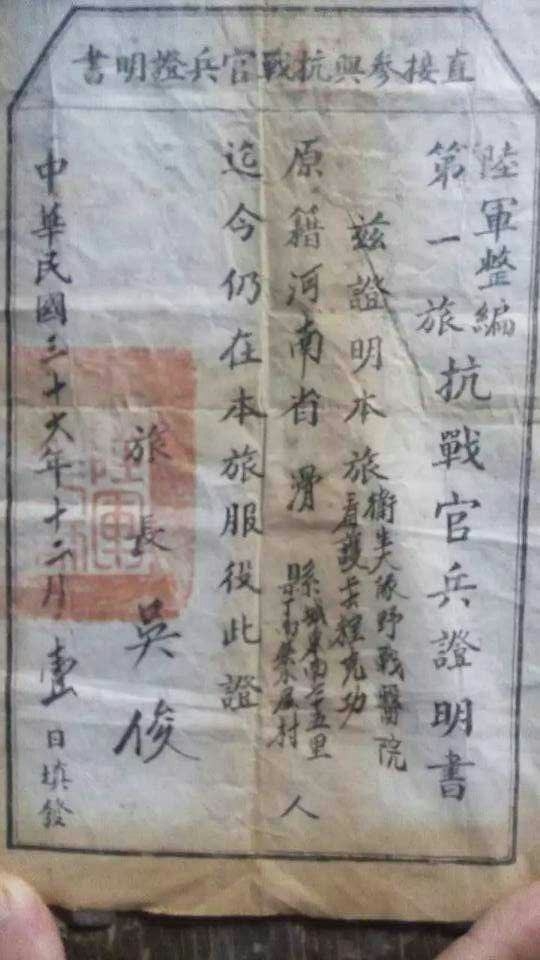 直接參與抗戰官兵證明書
陸軍整編
第一旅抗戰官兵證明書
茲證明本旅衛生隊野戰醫院
看護兵程克功
原籍河南省滑縣城東南二十五里
村人
迄今仍在本旅服役此證
旅長 吳俊
中華民國三十六年十二月壹日填發